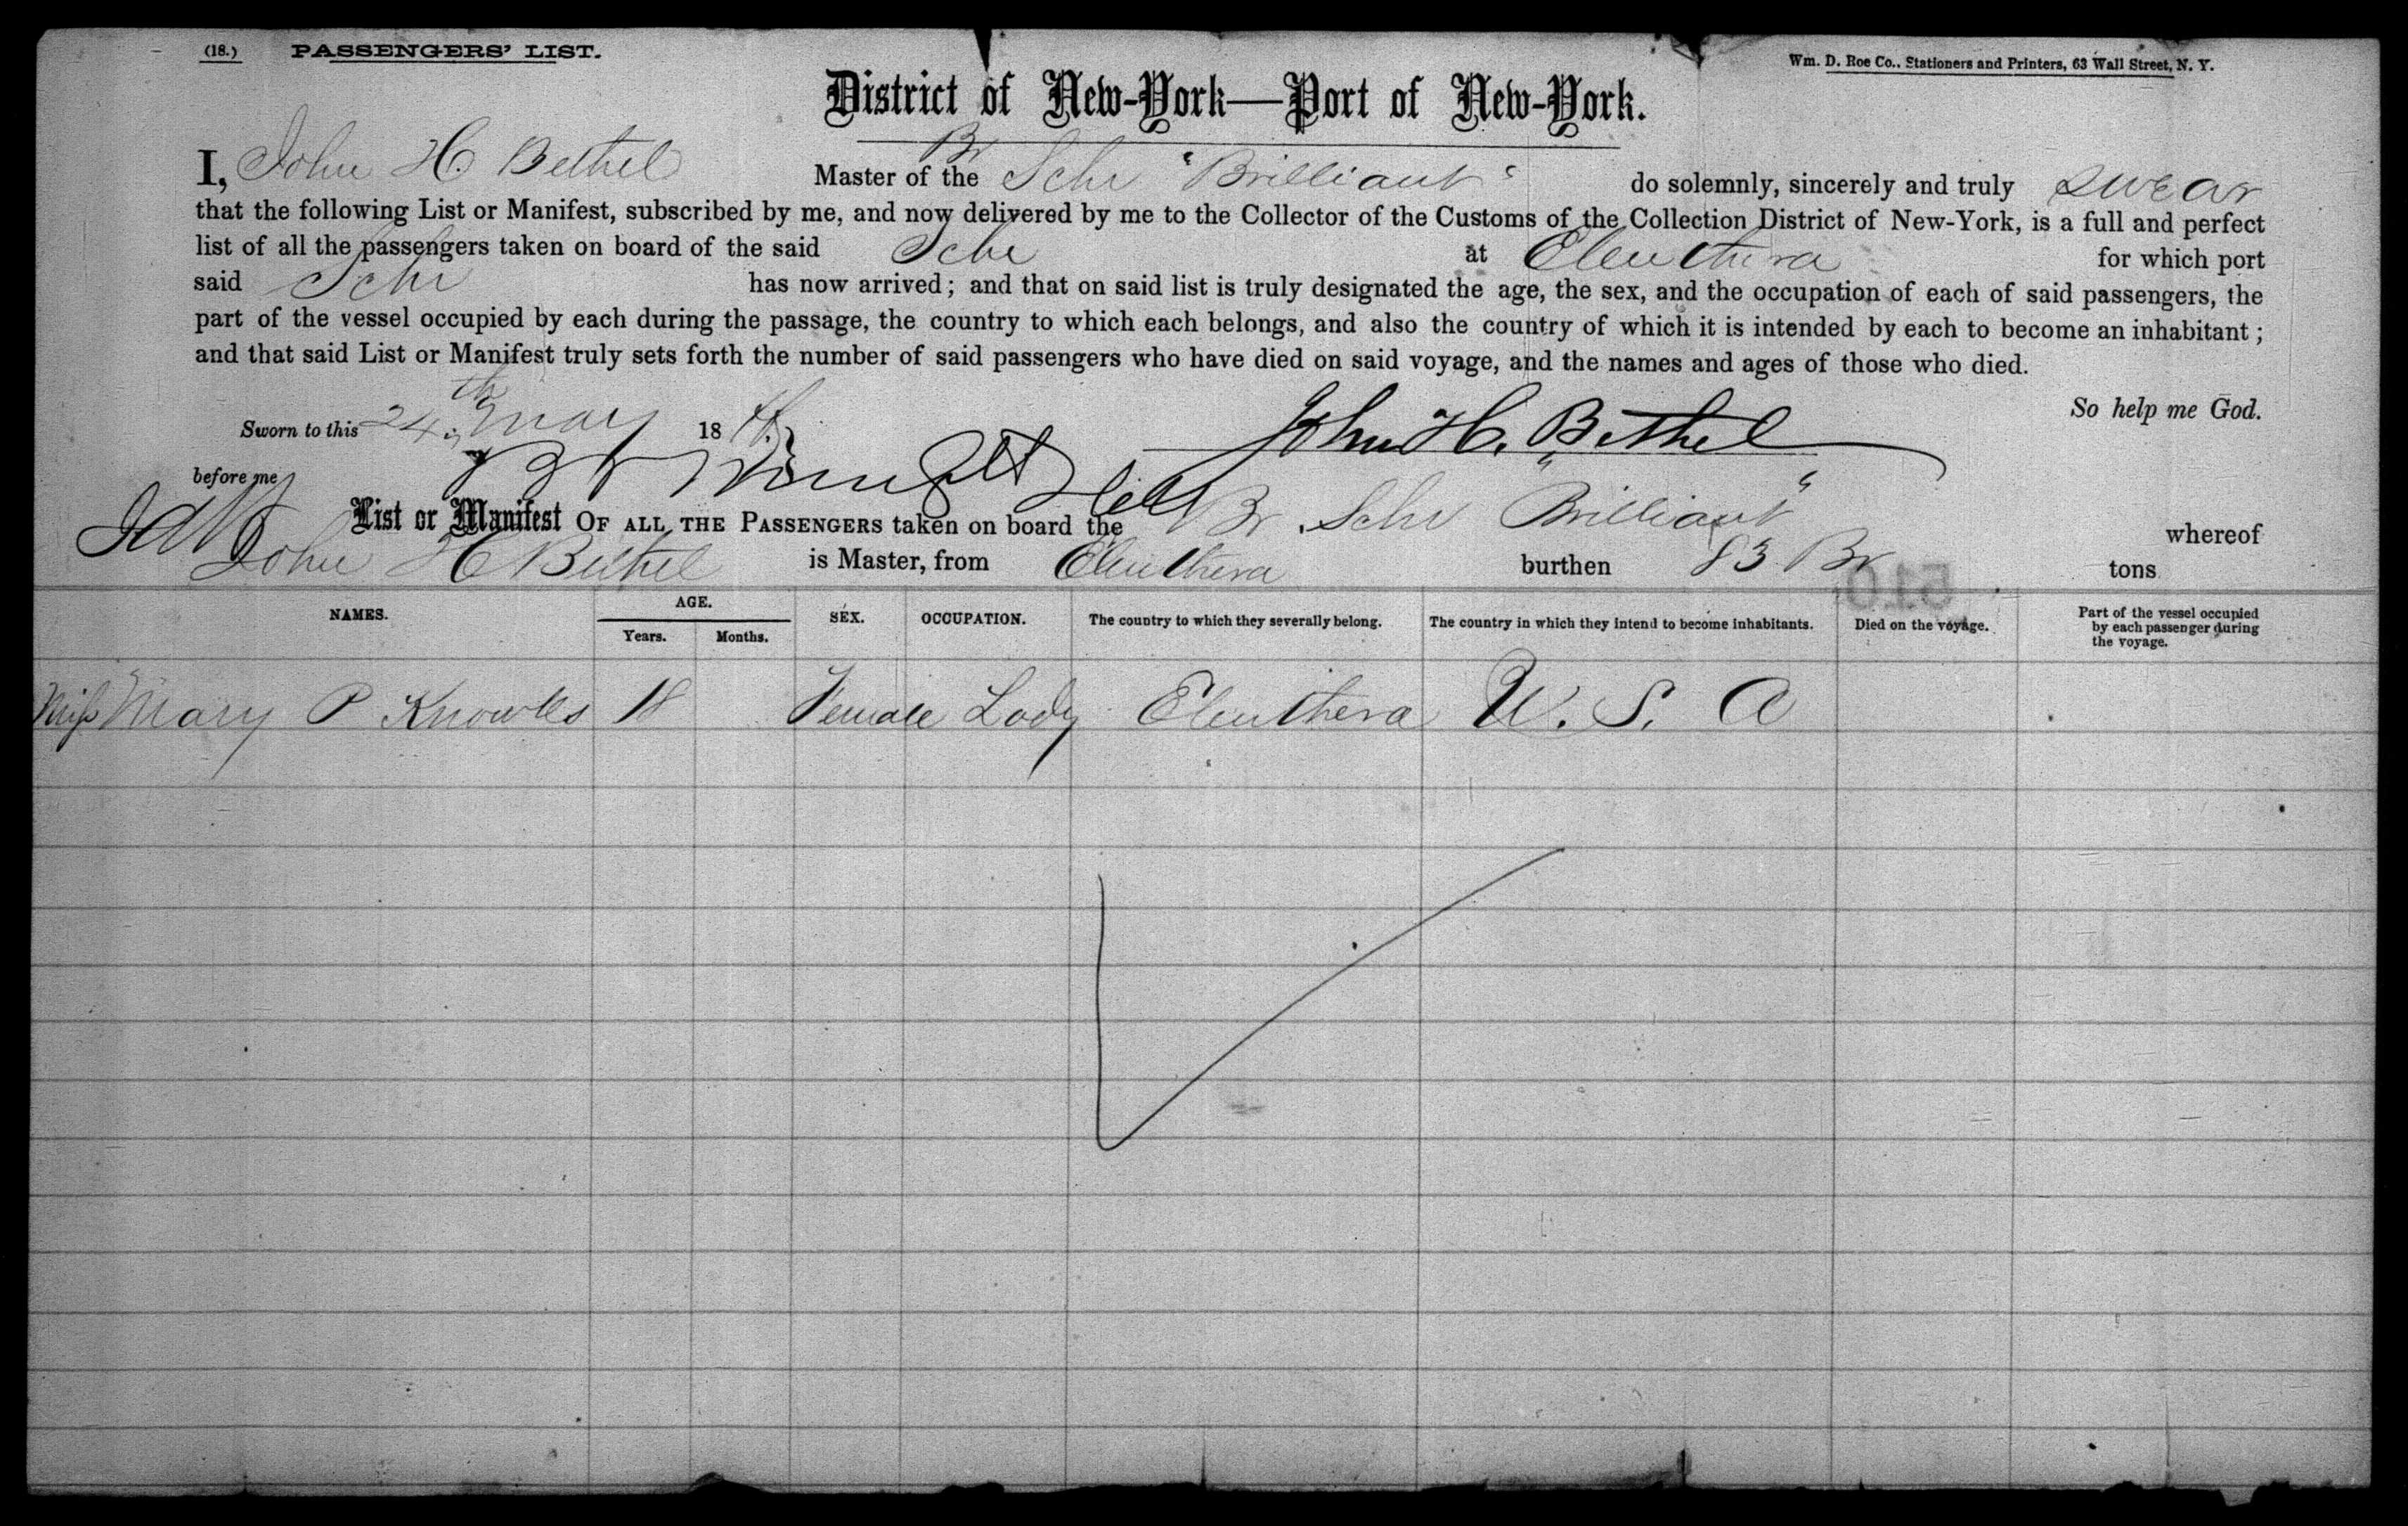 (18.) PASSENGERS' LIST.
Wm. D. Roe Co., Stationers and Printers, 63 Wall Street, N. Y.
District of New-York—Port of New-York.
I, John H. Bethel Master of the Br Schr "Brilliant" do solemnly, sincerely and truly swear
that the following List or Manifest, subscribed by me, and now delivered by me to the Collector of the Customs of the Collection District of New-York, is a full and perfect
list of all the passengers taken on board of the said Schr at Eleuthera for which port
said Schr has now arrived; and that on said list is truly designated the age, the sex, and the occupation of each of said passengers, the
part of the vessel occupied by each during the passage, the country to which each belongs, and also the country of which it is intended by each to become an inhabitant;
and that said List or Manifest truly sets forth the number of said passengers who have died on said voyage, and the names and ages of those who died.
So help me God.
Sworn to this 24th May 18
John H. Bethel
before me
List or Manifest OF ALL THE PASSENGERS taken on board the Br. Schr "Brilliant" whereof
John H Bethel is Master, from Eleuthera burthen 83 Br tons
510
NAMES. AGE. Years. Months. SEX. OCCUPATION. The country to which they severally belong. The country in which they intend to become inhabitants. Died on the voyage. Part of the vessel occupied by each passenger during the voyage.
Miss Mary P Knowles 18 Female Lady Eleuthera U. S. A